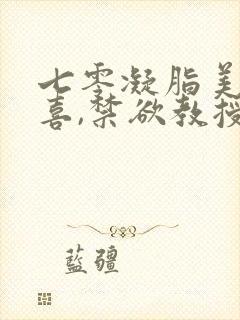 七零凝脂美
喜,禁欲教授
藍疆